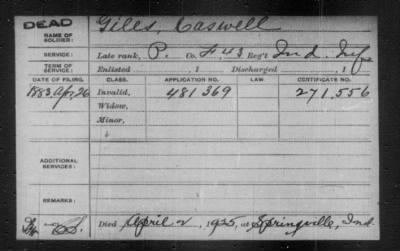 DEAD
NAME OF SOLDIER: Giles, Caswell
SERVICE: Late rank, P. Co. F, 43 Reg't Ind. Inf.
TERM OF SERVICE: Enlisted , 1 Discharged , 1
DATE OF FILING. CLASS. APPLICATION NO. LAW. CERTIFICATE NO.
1883 Apr. 26 Invalid, 481 369 271.556
Widow,
Minor,
ADDITIONAL SERVICES:
REMARKS:
Died April 2, 1925, at Springville, Ind.